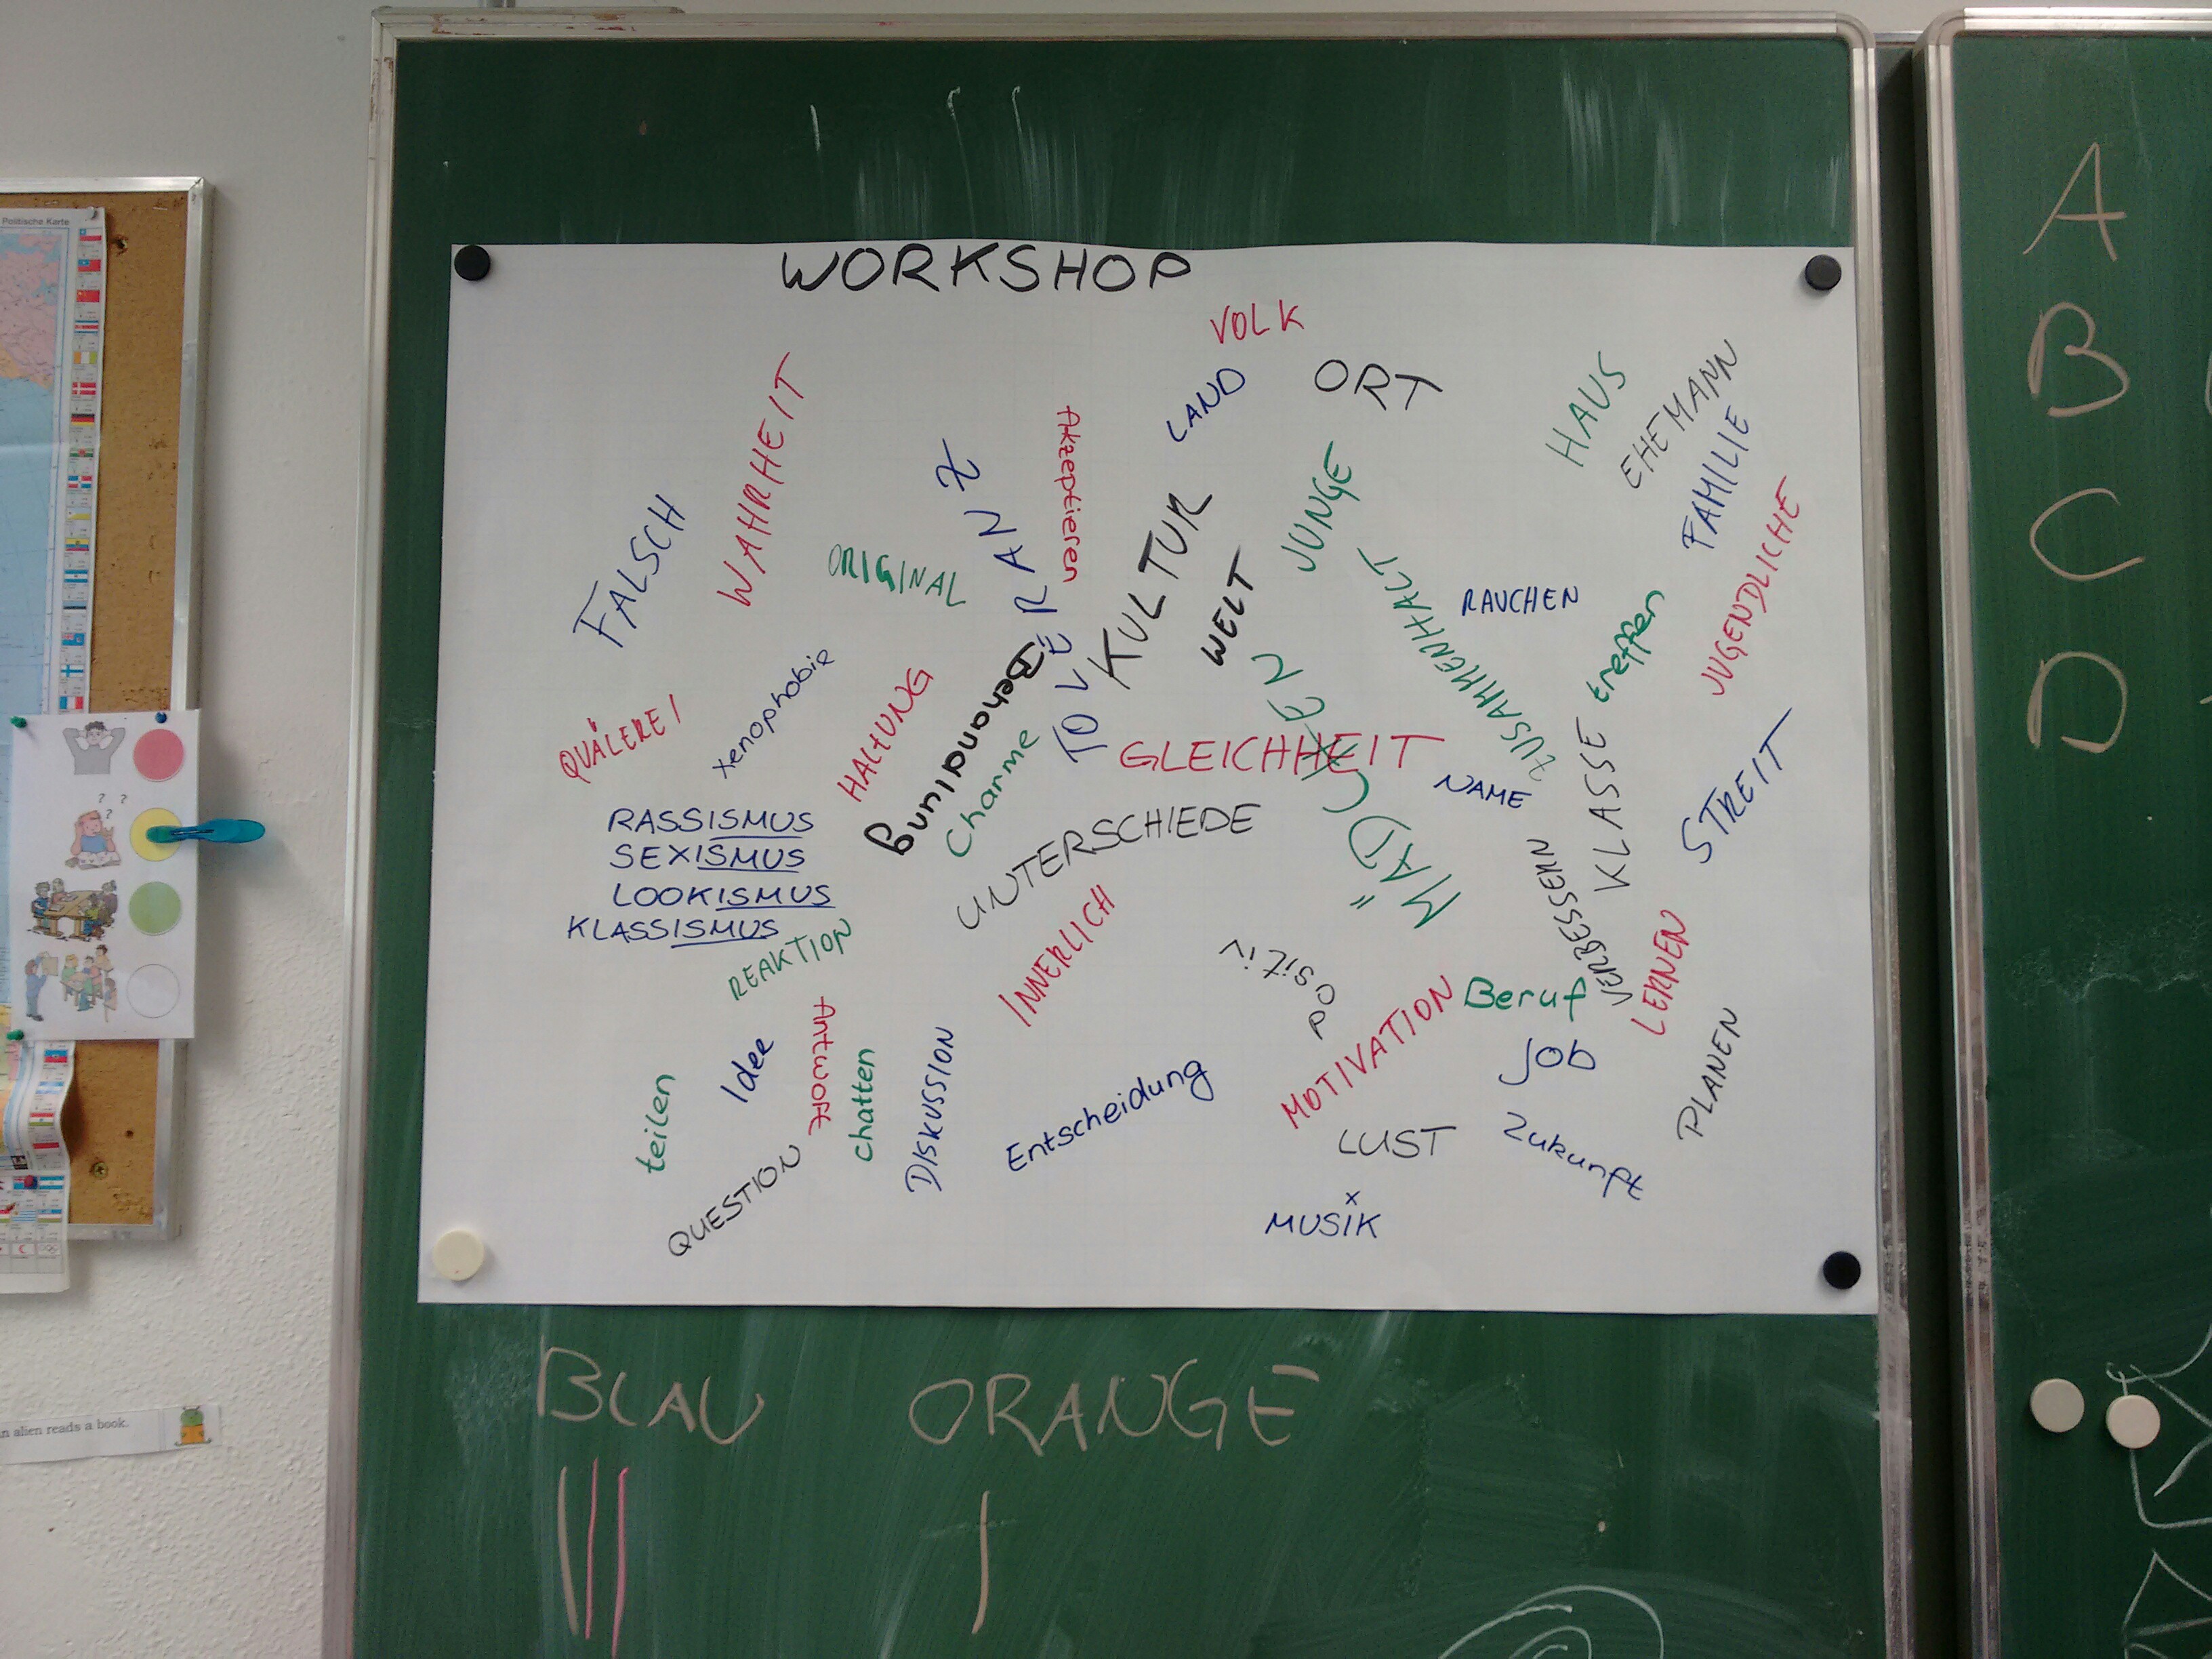 Politische Karte
WORKSHOP
VOLK
LAND
ORT
HAUS
EHEMANN
FAMILIE
JUGENDLICHE
WAHRHEIT
FALSCH
ORIGINAL
TOLERANZ
Akzeptieren
KULTUR
WELT
JUNGE
ZUSAMMENHALT
RAUCHEN
treffen
QUÄLEREI
xenophobie
HALTUNG
Behandlung
Charme
GLEICHHEIT
MÄDCHEN
NAME
KLASSE
STREIT
RASSISMUS
SEXISMUS
LOOKISMUS
KLASSISMUS
UNTERSCHIEDE
VERBESSERN
REAKTION
INNERLICH
Positiv
MOTIVATION
Beruf
LERNEN
teilen
Idee
Antwort
chatten
DISKUSSION
Entscheidung
Job
PLANEN
LUST
Zukunft
QUESTION
MUSIK
BLAU ORANGE
A
B
C
D
n alien reads a book.